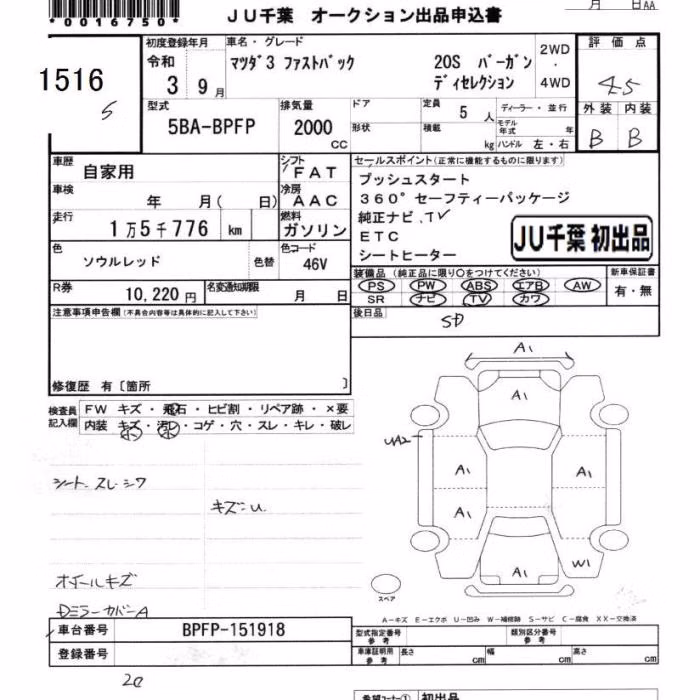 *0016750*
月 日AA
ＪＵ千葉 オークション出品申込書
1516
5
初度登録年月
令和
3 9月
車名・グレード
マツダ3 ファストバック 20S バーガン
ディセレクション
2WD
・
4WD
評価点
4.5
外装 内装
B B
型式
5BA-BPFP
排気量
2000
CC
ドア
形状
定員
5人
積載
kg
ディーラー・並行
モデル年式 年
ハンドル 左・右
車歴
自家用
シフト
FAT
車検
年 月( 日)
冷房
AAC
走行
1万5千776 km
燃料
ガソリン
色
ソウルレッド
色替
色コード
46V
R券
10,220円
名変通知期限
月 日
セールスポイント(正常に機能するものに限ります)
プッシュスタート
360°セーフティーパッケージ
純正ナビ.TV
ETC
シートヒーター
JU千葉 初出品
装備品 (純正品に限り○をつけてください)
PS PW ABS エアB AW
SR ナビ TV カワ
新車保証書
有・無
後日品
SD
注意事項申告欄(不具合内容等は具体的に記入して下さい)
修復歴 有〔箇所 〕
検査員
記入欄
FW キズ・飛石・ヒビ割・リペア跡・×要
内装 キズ・汚れ・コゲ・穴・スレ・キレ・破レ
シート スレ シワ
キズ U
ホイールキズ
Dミラーカバー A
A1
A1
UA2
A1
A1
A1
A1
W1
A1
スペア
A-キズ E-エクボ U-凹み W-補修跡 S-サビ C-腐食 XX-交換済
車台番号
BPFP-151918
登録番号
型式指定番号
参考
類別区分番号
参考
車庫証明用
参考
長さ cm
幅 cm
高さ cm
希望コーナー① 初出品